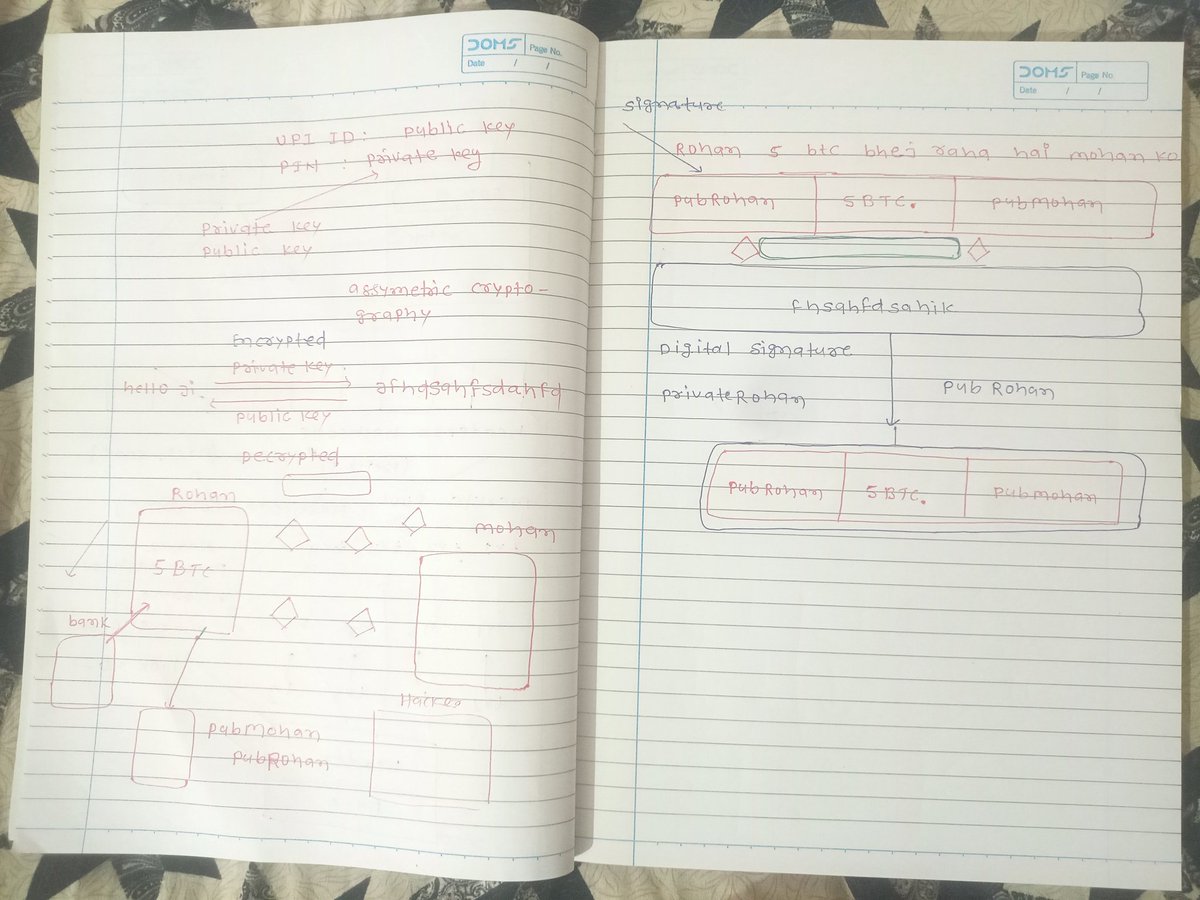 DOMS Page No.
Date / /
UPI ID: public key
PIN : private key
Private key
Public key
assymetric crypto-
graphy
Encrypted
private key.
hello ji.
public key
Decrypted
Rohan
mohan
5 BTC
bank
pubmohan
pubRohan
DOMS Page No
Date / /
signature
Rohan 5 btc bhej raha hai mohan ko
pubRohan 5 BTC. pubmohan
fhsahfdsahik
Digital signature
privateRohan
pub Rohan
pubRohan 5 BTC. pubmohan